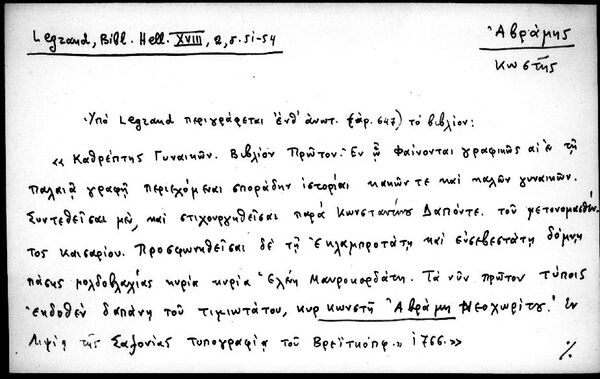 Legrand, Bibl. Hell. XVIII, 2, σ. 51-54
Ἀβράμης
Κωστῆς
Ὑπὸ Legrand περιγράφεται ἐνθ' ἀνωτ. (ἀρ. 647) τὸ βιβλίον:
« Καθρέπτης Γυναικῶν. Βιβλίον Πρῶτον. Ἐν ᾧ Φαίνονται γραφικῶς αἱ ἐν τῇ
παλαιᾷ γραφῇ περιεχόμεναι σποράδην ἱστορίαι κακῶν τε καὶ καλῶν γυναικῶν.
Συντεθεῖσαι μὲν, καὶ στιχουργηθεῖσαι παρὰ Κωνσταντίνου Δαπόντε. τοῦ μετονομασθέν-
τος Καισαρίου. Προσφωνηθεῖσαι δὲ τῇ ἐκλαμπροτάτῃ καὶ εὐσεβεστάτῃ δόμνῃ
πάσης μολδοβλαχίας κυρίᾳ κυρίᾳ Ἑλένῃ Μαυροκορδάτῃ. Τὰ νῦν πρῶτον τύποις
ἐκδοθὲν δαπάνῃ τοῦ τιμιωτάτου, κυρ κωνστῆ Ἀβράμη Νεοχωρίτου. Ἐν
Λιψίᾳ τῆς Σαξονίας τυπογραφίᾳ τοῦ Βρεϊτκόπφ.» 1766.»
%